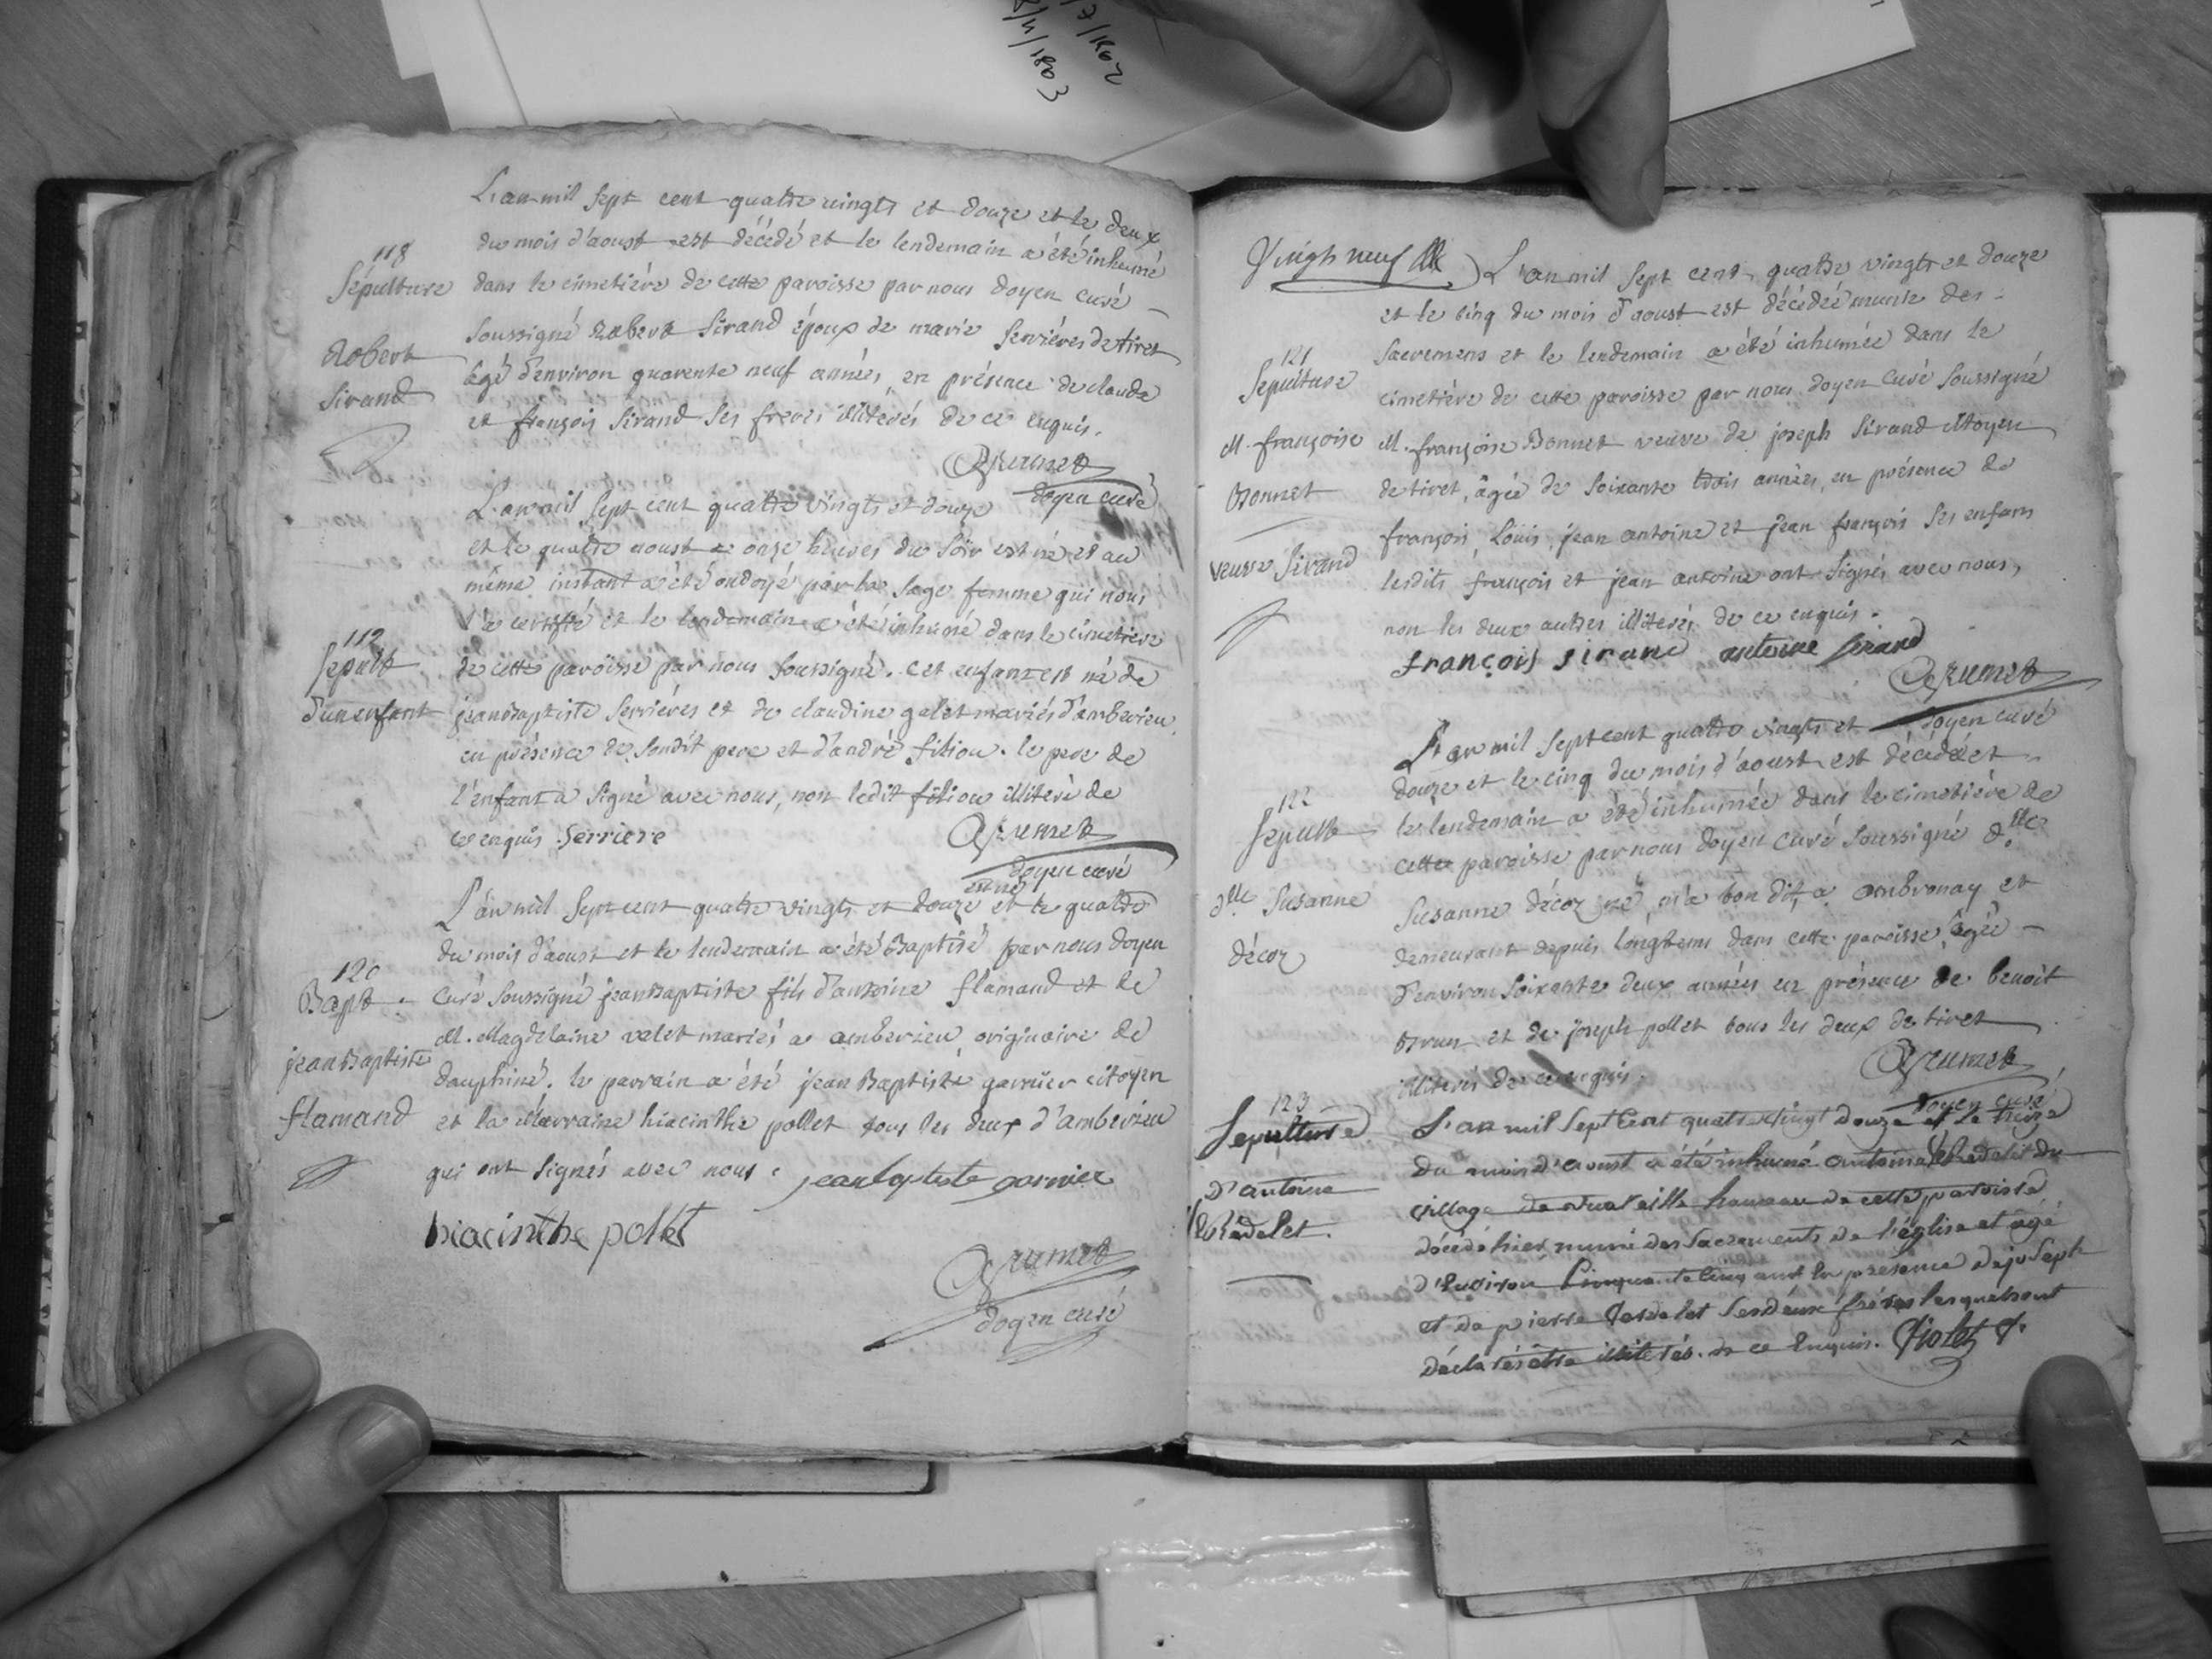 7/1802
/4/1803
L'an mil sept cent quatre vingts et douze et le deux
du mois d'aoust est décédé et le lendemain a été inhumé
118
Sépulture
Robert
Sirand
dans le cimetière de cette paroisse par nous doyen curé
soussigné Robert Sirand époux de marie Serrières de tiret
âgé d'environ quarente neuf années, en présence de claude
et françois Sirand ses freres illiterés de ce enquis.
Grumet
doyen curé
L'an mil sept cent quatre vingts et douze
et le quatre aoust a onze heures du soir est né et au
même instant a été ondoyé par la sage femme qui nous
l'a certifié et le lendemain a été inhumé dans le cimetiere
119
Sepult
d'un enfant
de cette paroisse par nous soussigné. cet enfant est né de
jean Baptiste Serrières et de claudine galet mariés d'amberieu
en présence de sondit pere et d'andré filiou. le pere de
l'enfant a signé avec nous, non ledit filiou illiteré de
ce enquis. Serriere
Grumet
doyen curé
L'an mil sept cent quatre vingts et douze est né et le quatre
du mois d'aoust et le lendemain a été Baptisé par nous doyen
120
Bapt.
jean Baptiste
flamand
curé soussigné jean Baptiste fils d'antoine flamand et de
M. Magdelaine valet mariés a amberieu, originaire de
dauphiné. le parrain a été jean Baptiste garnier citoyen
et la Marraine hiacinthe pollet tous les deux d'amberieu
qui ont signés avec nous. jean baptiste garnier
hiacinthe pollet
Grumet
doyen curé
Vingt neuf
L'an mil sept cent quatre vingts et douze
et le cinq du mois d'aoust est décédée munie des
sacremens et le lendemain a été inhumée dans le
121
Sepulture
M. françoise
Bonnet
veuve Sirand
cimetière de cette paroisse par nous doyen curé soussigné
M. françoise Bonnet veuve de joseph Sirand citoyen
de tiret, âgée de soixante trois années, en présence de
françois, Louis, jean antoine et jean françois ses enfans
lesdits françois et jean antoine ont signés avec nous,
non les deux autres illiterés de ce enquis.
françois sirand antoine sirand
Grumet
doyen curé
L'an mil sept cent quatre vingts et
douze et le cinq du mois d'aoust est décédée et
122
Sepult
dlle Susanne
décoz
le lendemain a été inhumée dans le cimetière de
cette paroisse par nous doyen curé soussigné dlle
Susanne décoz né, m'a t'on dit, a ambronay et
demeurant depuis longtems dans cette paroisse, âgée
d'environ soixante deux années en présence de benoit
Brun et de joseph pollet tous les deux de tiret
illiterés de ce enquis.
Grumet
doyen curé
123
Sepulture
d'antoine
L'an mil sept cent quatre vingt douze et le treize
du mois d'aoust a été inhumé antoine du
village de hameau de cette paroisse
décédé hier muni des sacrements de l'église et agé
d'environ cinquante cinq ans en presence de joseph
et de pierre ses deux frères lesquels ont
déclarés être illiterés de ce enquis. Violet